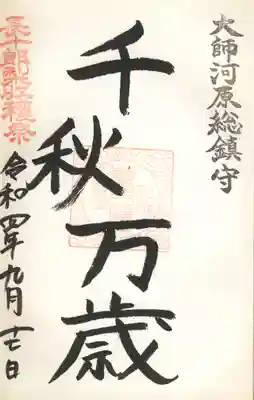 大師河原総鎮守
千秋万歳
長十郎梨祭
令和四年九月十七日